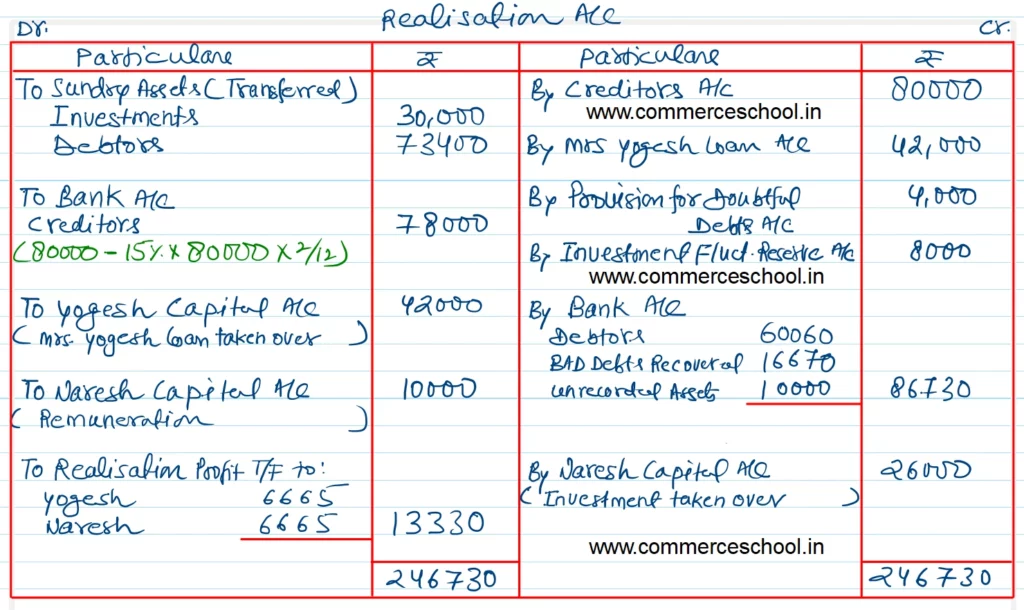 Realisation A/c
Dr.
Cr.
Particulars ₹ Particulars ₹
To Sundry Assets (Transferred)
Investments 30,000
Debtors 73400
To Bank A/c
Creditors 78000
(80000 - 15% × 80000 × 2/12)
To Yogesh Capital A/c 42000
(Mrs. Yogesh loan taken over)
To Naresh Capital A/c 10000
(Remuneration)
To Realisation Profit T/F to:
Yogesh 6665
Naresh 6665 13330
246730
By Creditors A/c 80000
www.commerceschool.in
By Mrs Yogesh Loan A/c 42,000
By Provision for Doubtful 4,000
Debts A/c
By Investment Fluct. Reserve A/c 8000
www.commerceschool.in
By Bank A/c
Debtors 60060
BAD Debts Recovered 16670
unrecorded Assets 10000 86730
By Naresh Capital A/c 26000
(Investment taken over)
www.commerceschool.in
246730